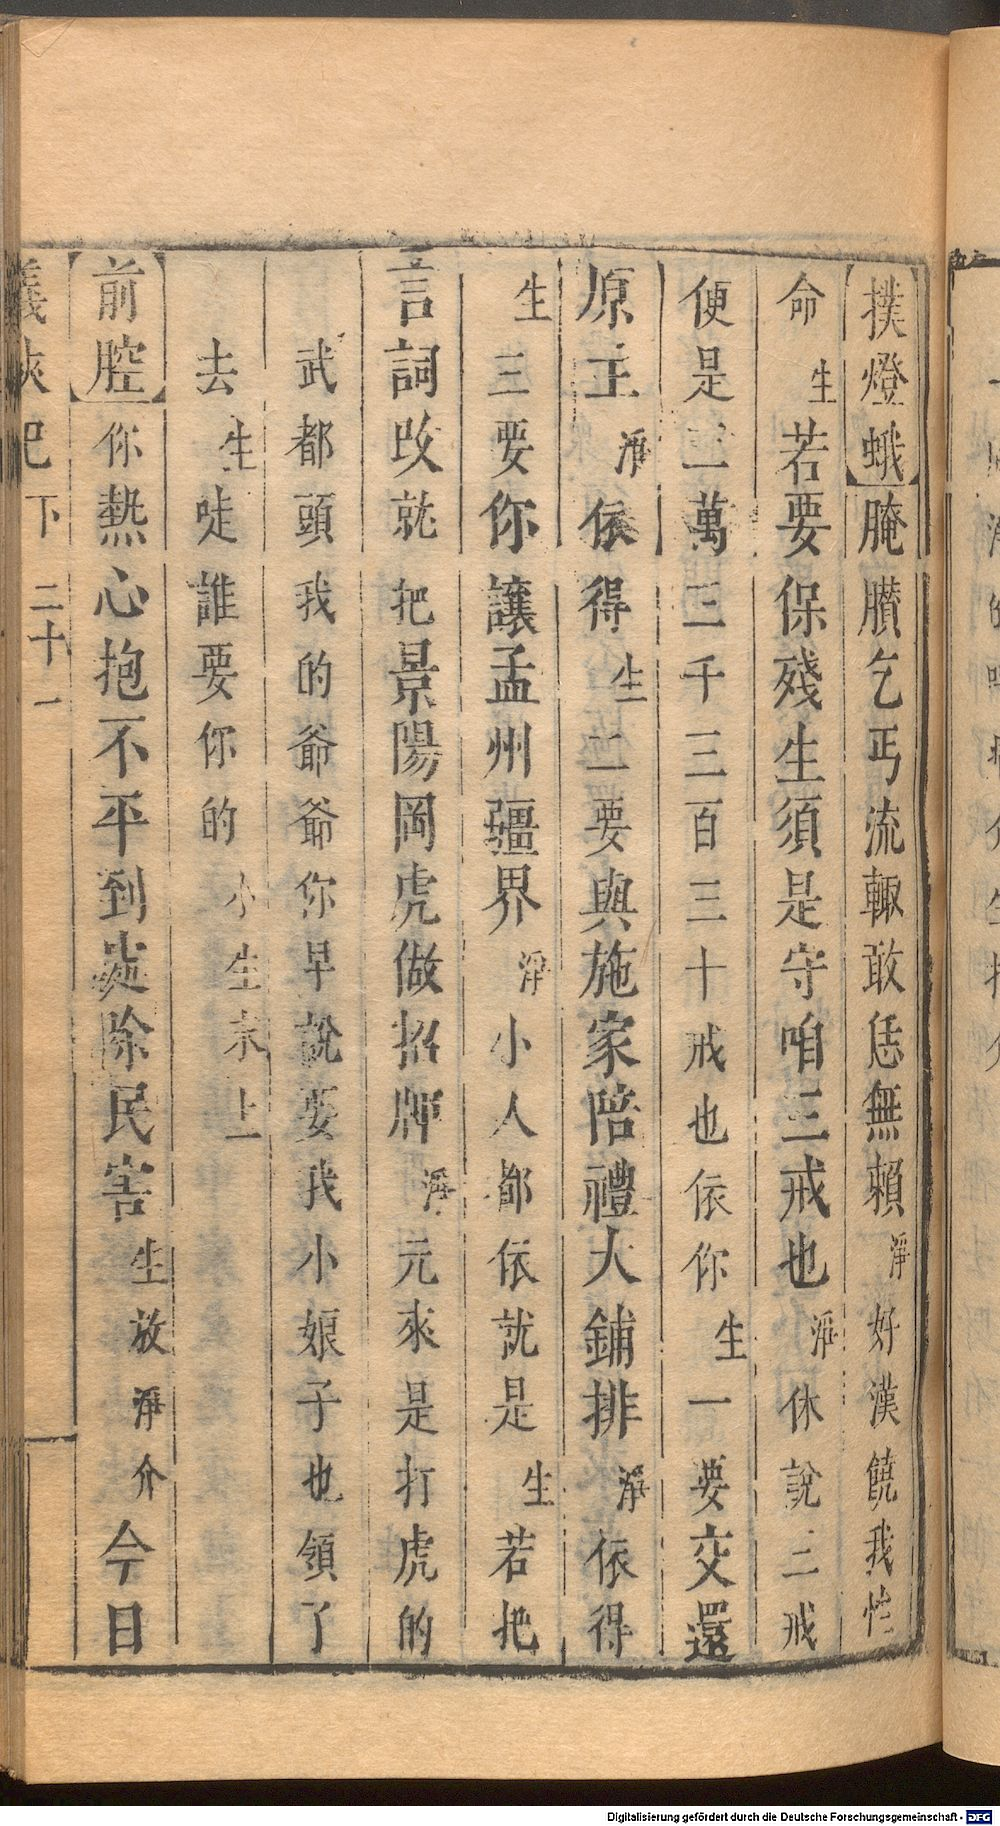 【撲燈蛾】腌臢乞丐流輙敢恁無賴淨好漢饒我性
命生若要保殘生須是守咱三戒也淨休說三戒
便是三萬三千三百三十戒也依你生一要交還
原主淨依得生二要與施家陪禮大鋪排淨依得
生三要你讓孟州疆界淨小人都依就是生若把
言詞改就把景陽岡虎做招牌淨元來是打虎的
武都頭我的爺爺你早說要我小娘子也領了
去生哇誰要你的小生末上
【前腔】你熱心抱不平到處除民害生放淨介今日
義俠記下 二十一
Digitalisierung gefördert durch die Deutsche Forschungsgemeinschaft - DFG